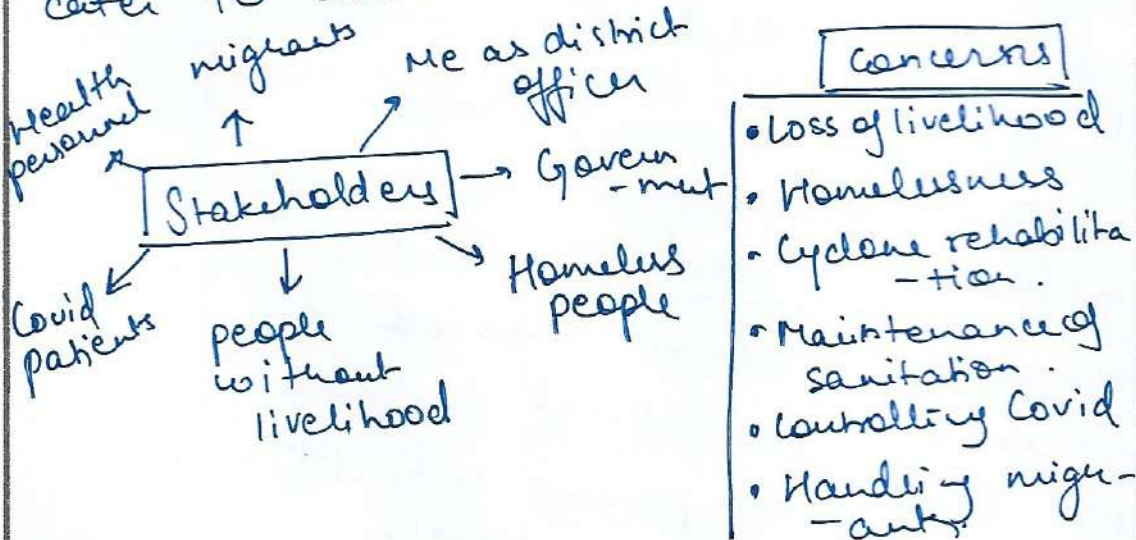 cater to
migrants
Me as district
officer
Health
personnel
Stakeholders
Govern
-ment
Homeless
people
people
without
livelihood
Covid
patients
Concerns
• Loss of livelihood
• Homelessness
• Cyclone rehabilita
-tion.
• Maintenance of
sanitation.
• Controlling Covid
• Handling migr-
-ants.